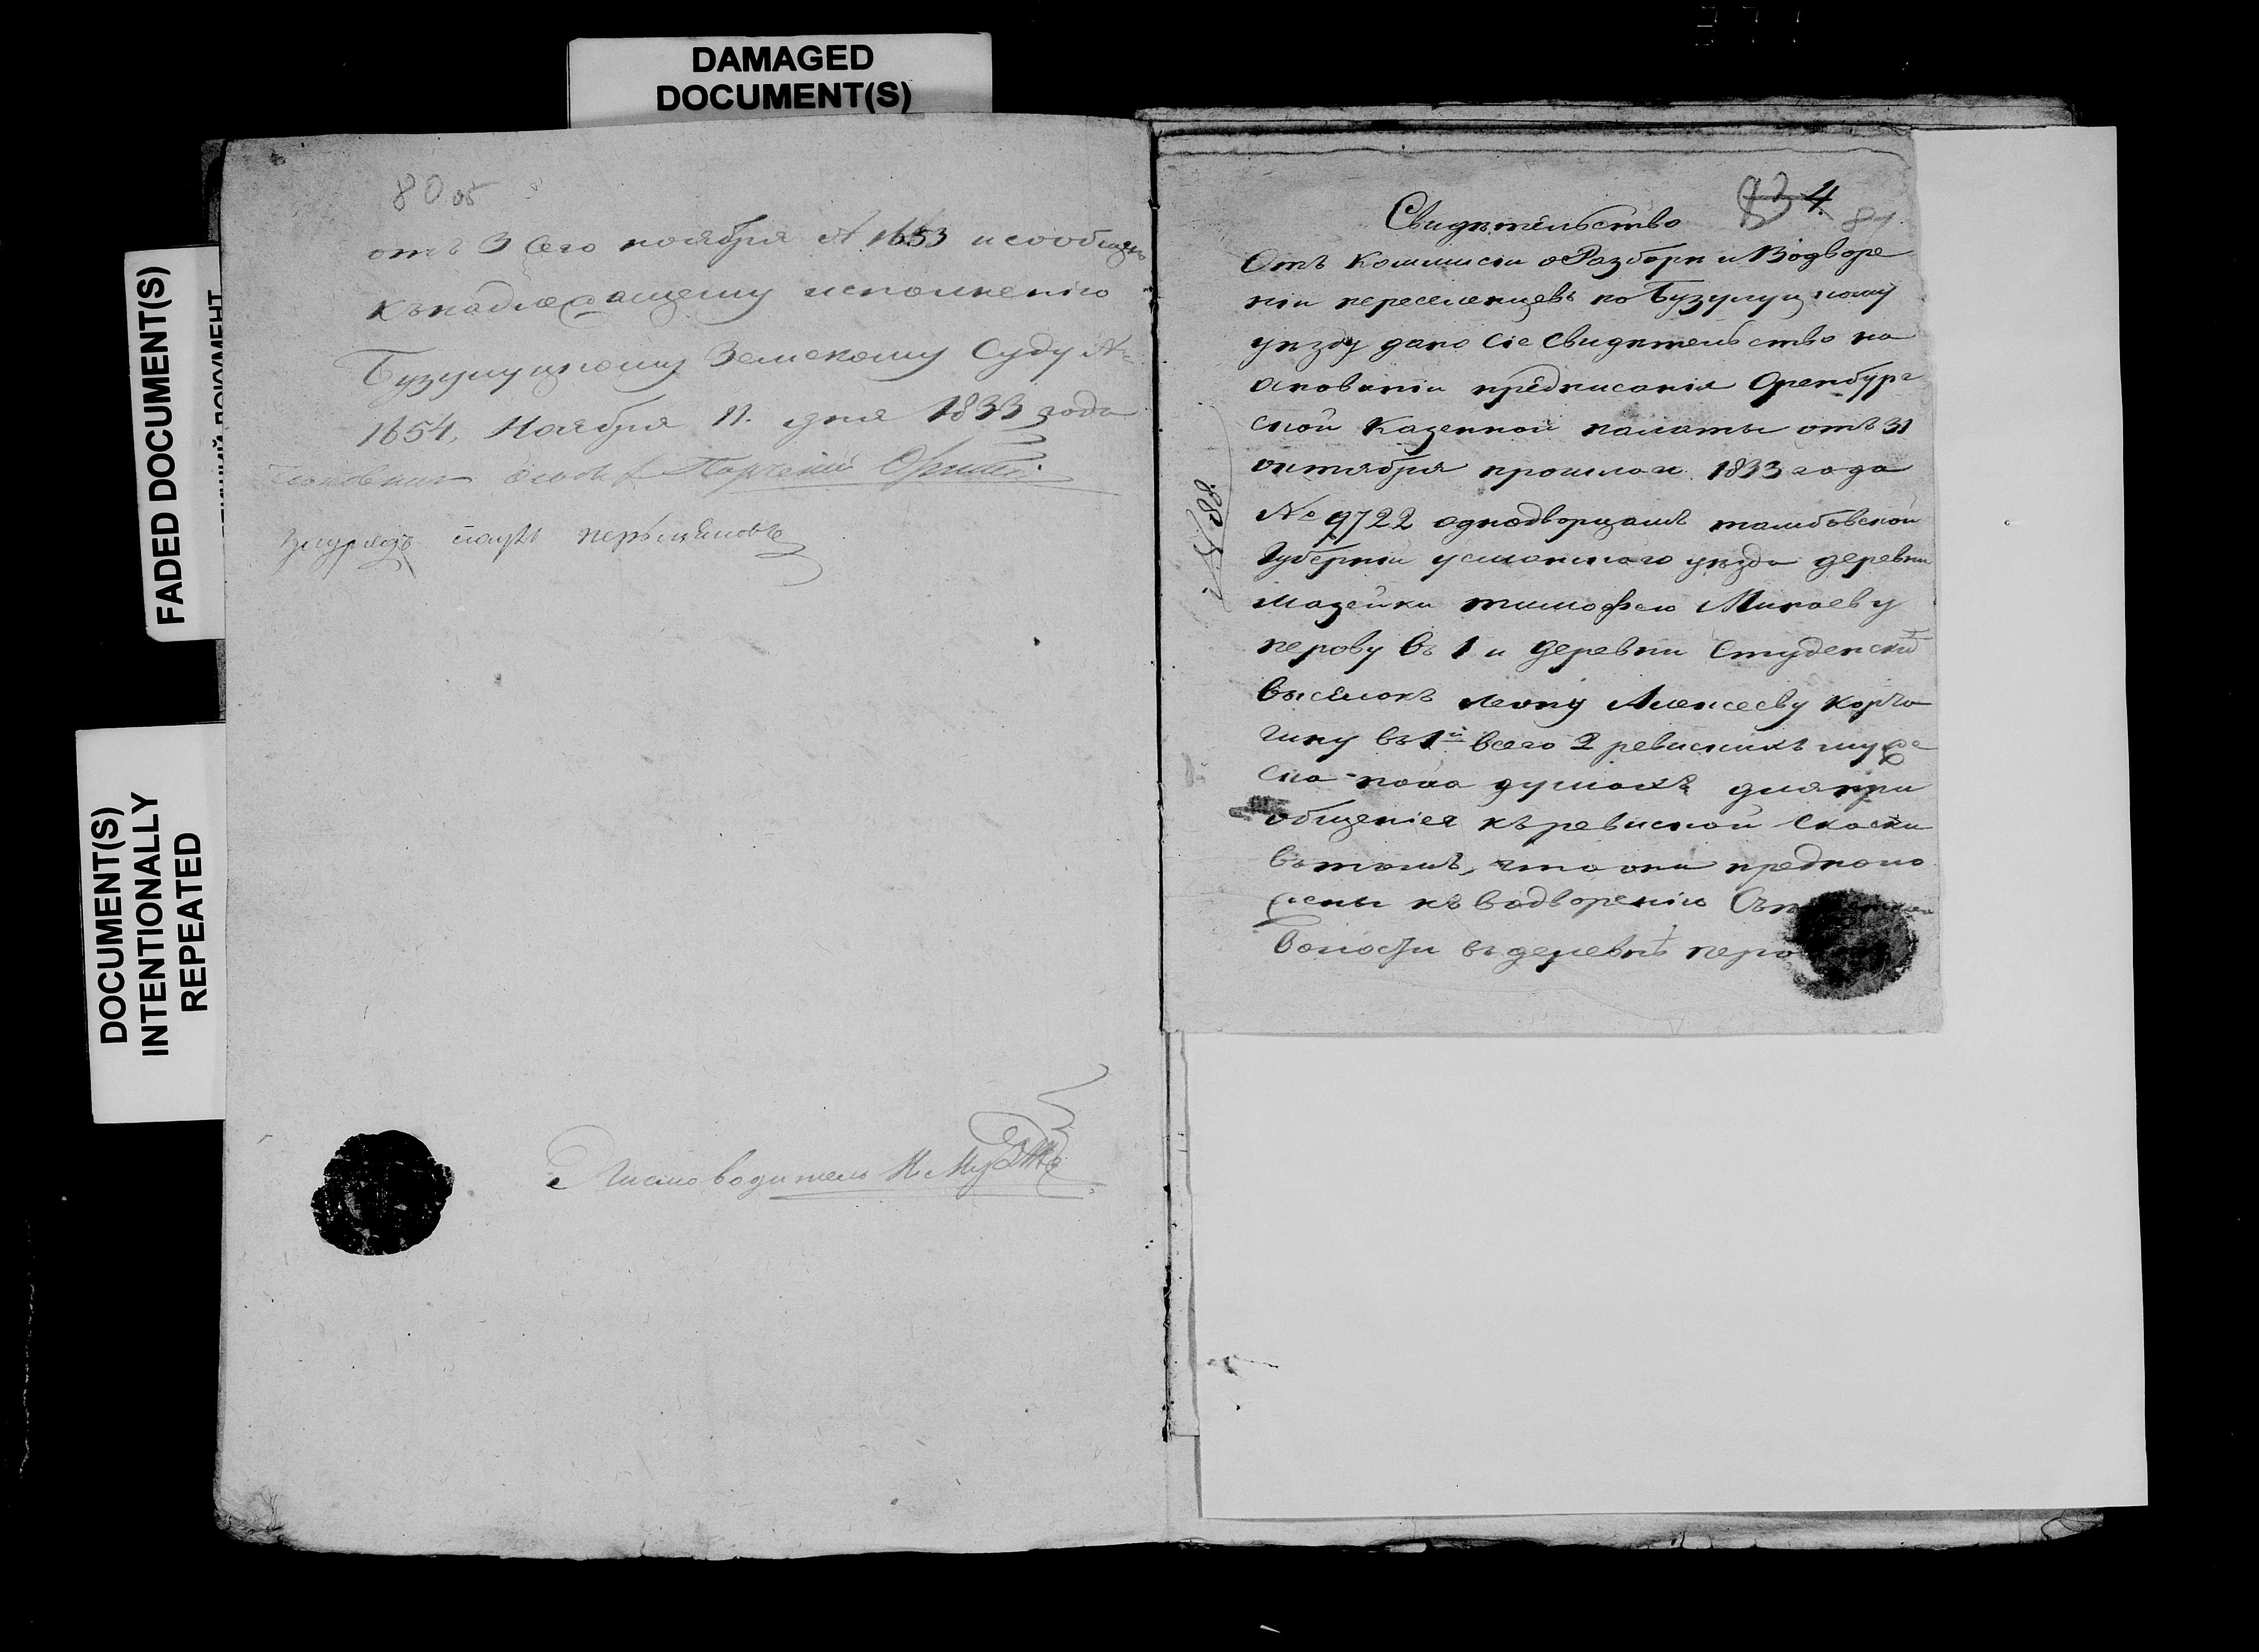 DAMAGED
DOCUMENT(S)
FADED DOCUMENT(S)
DOCUMENT(S)
INTENTIONALLY
REPEATED
80 об
отъ 3 сего ноября № 1653 и сообщенъ
къ надлежащему исполнению
Бузулуцкому Земскому Суду №
1654, Ноября 11. дня 1833 года
Письмоводитель
834
81
Свидѣтельство
Отъ Коммисіи о Разборѣ и Водворе
ніи переселенцевъ по Бузулуцкому
уѣзду дано сіе свидѣтельство на
основаніи предписанія Оренбург
ской Казенной палаты отъ 31
октября прошлаго 1833 года
№ 9722 однодворцамъ тамбовской
Губерніи усманскаго уѣзда деревни
Мазейки тимофею Минаеву
перову въ 1 и деревни Студенскій
выселокъ Леону Алексееву Корча
гину въ 1й всего 2 ревискихъ муже
ска пола душахъ для при
общенія къ ревиской Скаски
въ томъ, что они предполо
жены къ водворенію
Волости въ деревнѣ
№ 88.